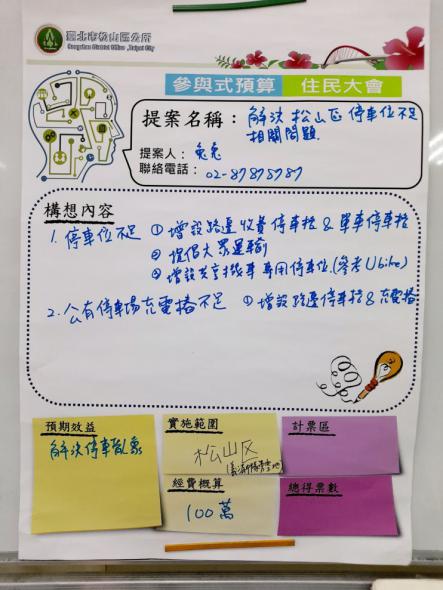 臺北市松山區公所
Songshan District Office, Taipei City
參與式預算 住民大會
提案名稱：解決松山區停車位不足
相關問題
提案人：兔兔
聯絡電話：02-87878787
構想內容
1. 停車位不足 ①增設路邊收費停車格 & 單車停車格
②提倡大眾運輸
③增設共享機車專用停車位.(參考Ubike)
2. 公有停車場充電樁不足 ①增設路邊停車格 & 充電樁
預期效益
解決停車亂象
實施範圍
松山区
經費概算
100萬
計票區
總得票數